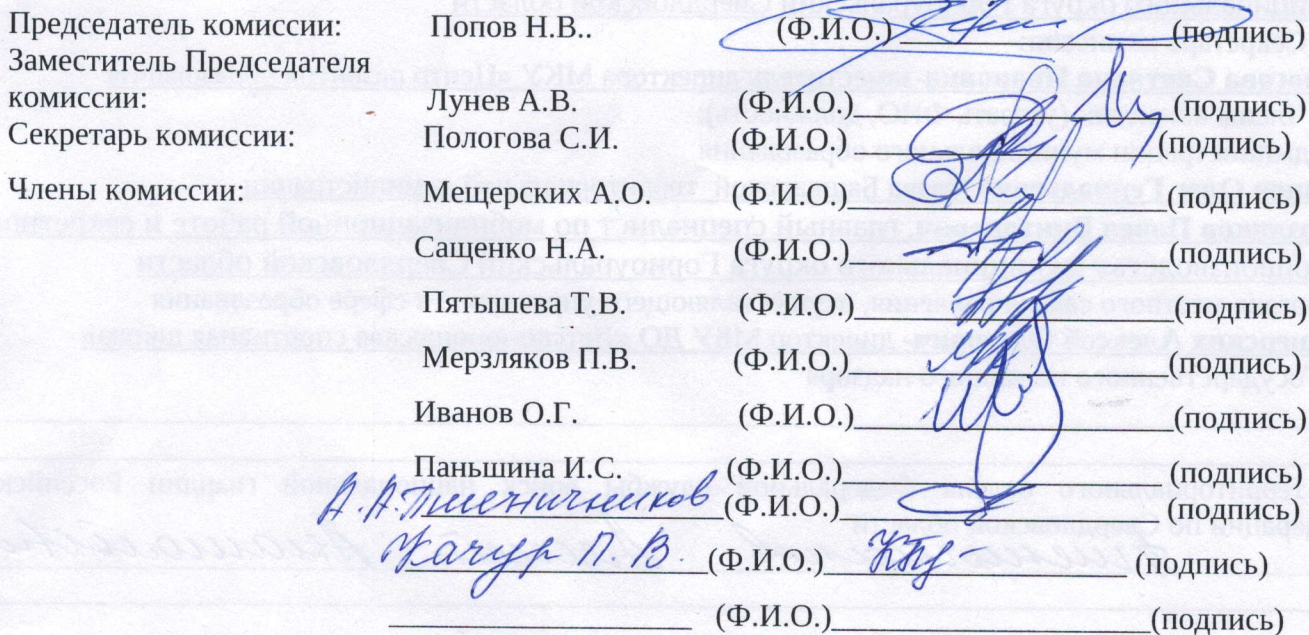 Председатель комиссии: Попов Н.В.. (Ф.И.О.) (подпись)
Заместитель Председателя
комиссии: Лунев А.В. (Ф.И.О.) (подпись)
Секретарь комиссии: Пологова С.И. (Ф.И.О.) (подпись)
Члены комиссии: Мещерских А.О. (Ф.И.О.) (подпись)
Сащенко Н.А. (Ф.И.О.) (подпись)
Пятышева Т.В. (Ф.И.О.) (подпись)
Мерзляков П.В. (Ф.И.О.) (подпись)
Иванов О.Г. (Ф.И.О.) (подпись)
Паньшина И.С. (Ф.И.О.) (подпись)
А.А. Пшеничников (Ф.И.О.) (подпись)
Качур П.В. (Ф.И.О.) (подпись)
(Ф.И.О.) (подпись)